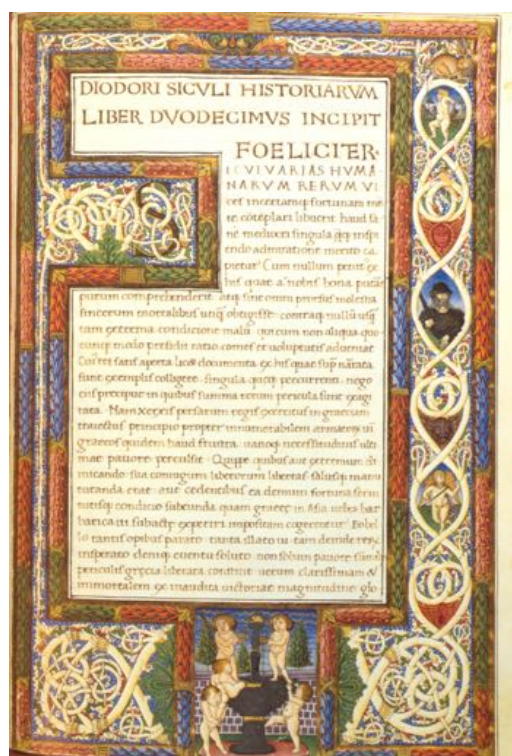 DIODORI SICVLI HISTORIARVM
LIBER DVODECIMVS INCIPIT
FOELICITER
I CVI VARIAS HVMA
NARVM RERVM VI
ces incertamq fortunam
re cōteplari libuerit haud
ne mediocri singula
endo admiratione merito ca
pietur Cum nullum
his quae a nobis bona
putum comprehenderit atq sine omni prorsus molestia
sincerum mortalibus unq obtigisse contraq nullū usq
tam extrema condicione malū quicum non aliqua quo
cunq modo persidii ratio comes et uoluptatis adueniat
satis aperta documenta ex his quae narata
sunt exemplis colligere singula percurrenti nego
cijs precipue in quibus summa rerum pericula sunt
tata Nam xerxes persarum regis exercitus in graeciam
traiectus principio propter innumerabilem
graecos quidem haud frustra uanoq necessitudinis ulti
mae pauore perculsit Quippe quibus aut extremum di
micando sua coniugum liberorum libertas salusq manu
tutanda erat aut cedentibus ea demum fortuna serui
tutisq condicio subeunda quam graecis in Asia urbes bar
barica ui subactę imposita cogerentur
lo tantis opibus parato tanta illato ui tam demide
insperato deniq euentu soluto non solum pauore
periculis grecia liberata constitit uerum clarissimam &
immortalem ex inaudita uictoriae magnitudine glo